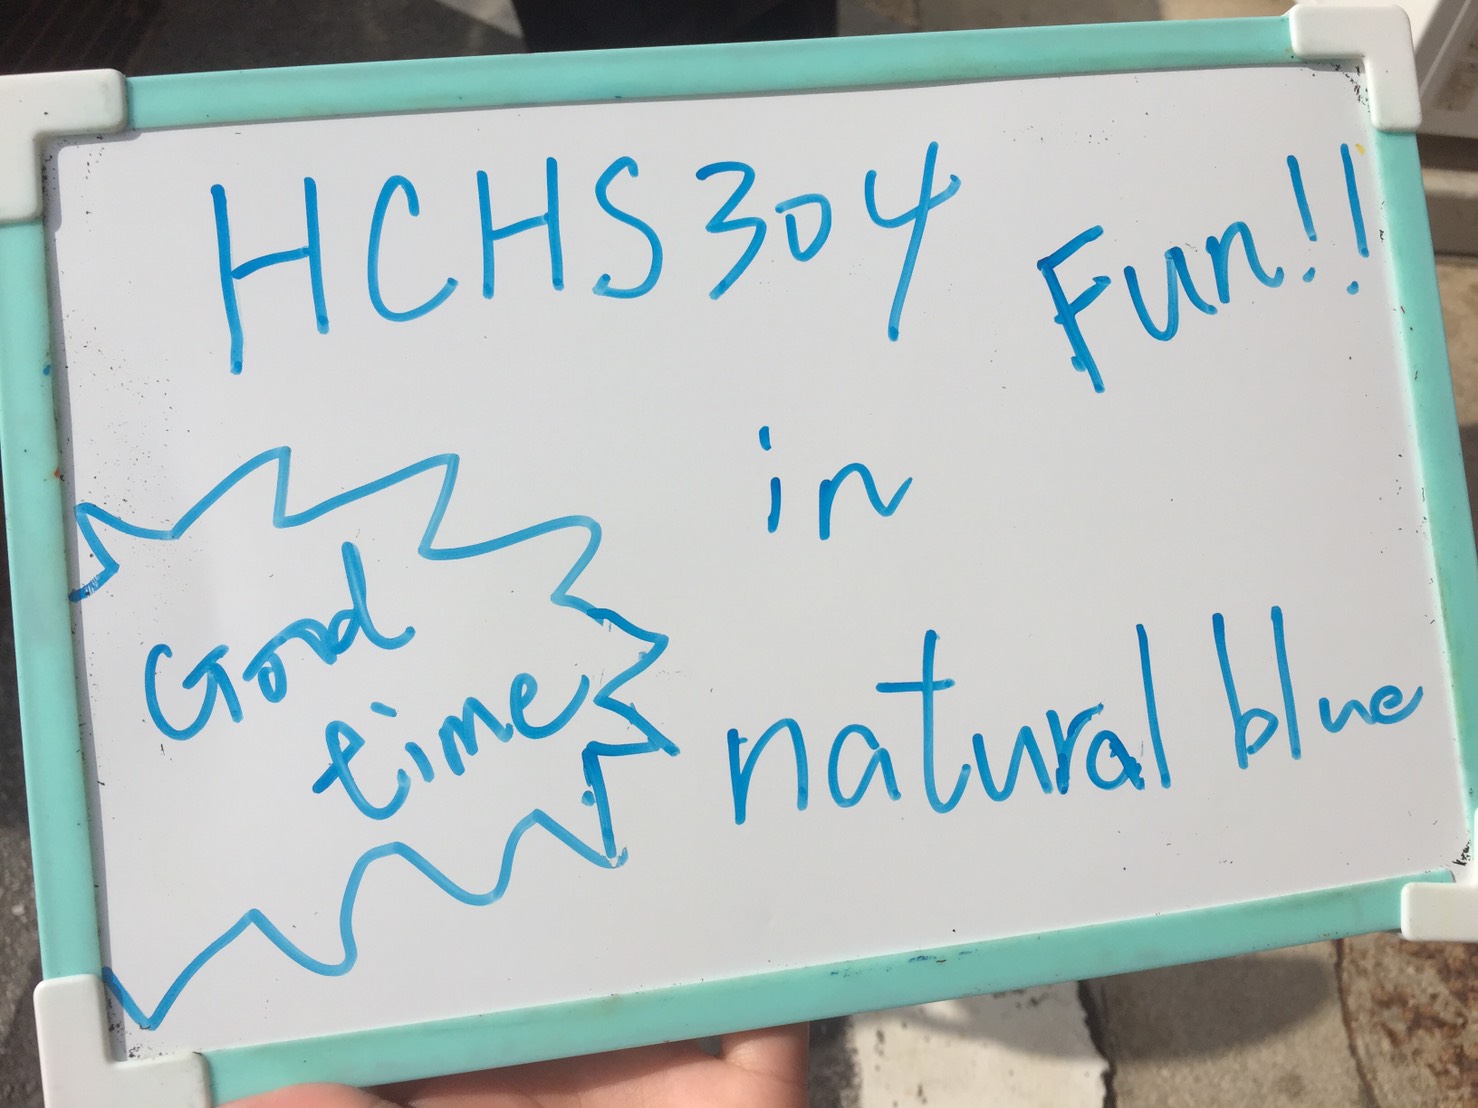 HCHS304 Fun!!
in
natural blue
Good
time